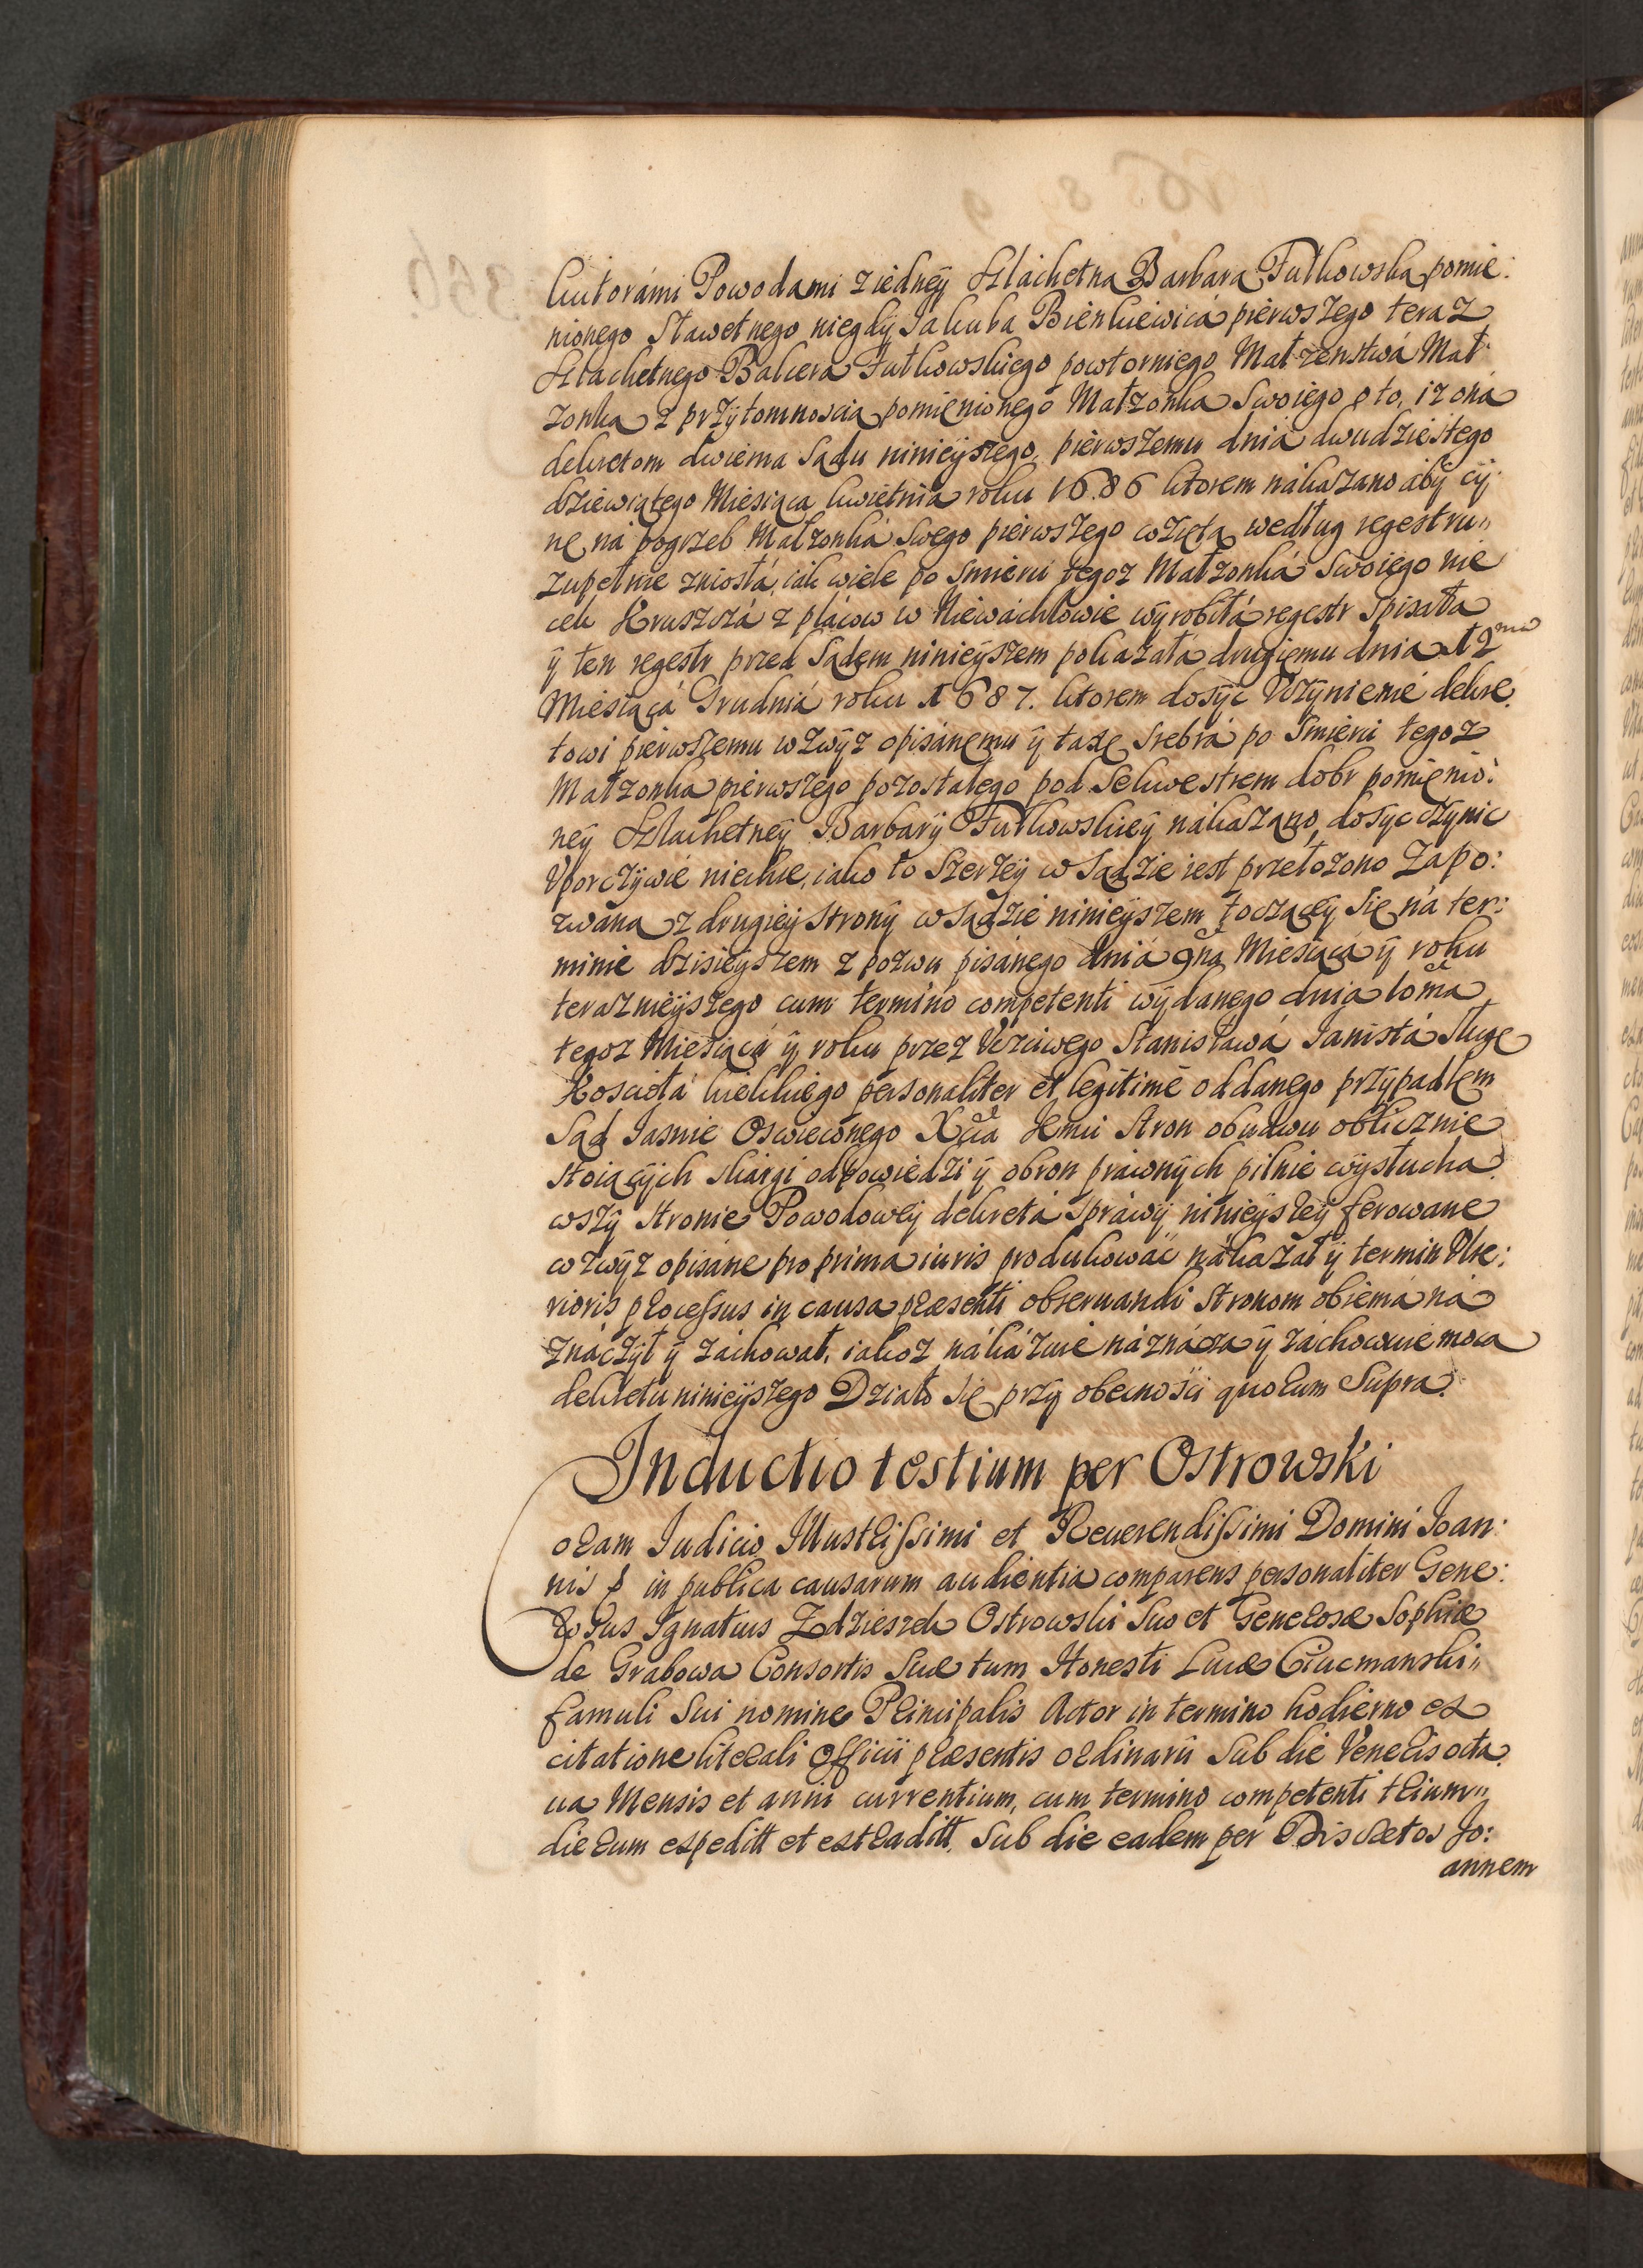 kutorámi Powodami z iedneÿ Szláchetna Barbara Fułkowska pomie:
nionego Sławetnego niegdÿ Jakuba Bieńkiewica pierwszego teraz
Szlachetnego Balcera Fułkowskiego powtorniego Małżenstwá Mał:
zonka z przÿtomnoscią pomięnionego Małzonka Swoiego o to, iz oná
dekretom dwiema Sądu ninieÿszego, pierwszemu dniá dwudziestego
dziewiątego Miesiąca kwietnia roku 1686 ktorem nákazano abÿ cÿ:
nę ná pogrzeb Małzonká Swego pierwszego wziętą według regestru
zupełnie zniosłá, iák wiele po Smierci tegoz Małzonká Swoiego nie
cek Kruszczá z płácow w Niewáchlowie wÿrobiłá regestr Spisała
ÿ ten regestr przed Sądem ninieÿszem pokazałá drugięmu dnia 12ma
Miesiącá Grudniá roku 1687. ktorem dosÿc Uczÿnienie dekre:
towi pierwszemu wzwÿz opisánęmu ÿ taxę Srebrá po Smierci tegoz
Małzonka pierwszego pozostałego pod Sekwestrem dobr pomięnio:
neÿ Szlachetneÿ Barbarÿ Fułkowskieÿ nákazano, dosÿc czÿnic
Uporczÿwie niechce, iako to Szerzeÿ w Sądzie iest przełozono Zapo:
zwána z drugieÿ stronÿ w Sądzie ninieÿszem toczącÿ się ná ter:
minie dzisieÿszem z pozwu pisánego dniá 9na Miesiącá ÿ roku
terazniéÿszego cum termino competenti wÿdanego dnia 10ma
tegoz Miesiącá ÿ roku przez Uczciwego Stanisławá Janistá Sługę
Kosciołá kieleckiego personaliter et legitime oddanego przÿpadłem
Sąd Jasnie Oswieconego Xcia Jemci Stron obudwu oblicznie
stoiącÿch skárgi odpowiedzi ÿ obron práwnÿch pilnie wÿsłucha:
wszÿ stronie Powodoweÿ dekretá Spráwÿ ninieÿszeÿ ferowane
wzwÿz opisáne pro prima iuris produkować nákazał ÿ termin Ulte:
rioris processus in causa præsenti obseruandi Stronom obiemá ná
znáczÿł ÿ záchował, iakoz nákázuie náznácza ÿ záchowuie moca
dekretu ninieÿszego Dziáło się przÿ obecnośći quorum Supra.
Inductio testium per Ostrowski
oram Judicio Illustrissimi et Reuerendissimi Domini Joan:
nis in publica causarum audientia comparens personaliter Gene:
rosus Ignatius Zdzieszek Ostrowski Suo et Generosæ Sophiæ
de Grabowa Consortis Suæ tum Honesti Lucæ Ciucmanski
famuli Sui nomine Principalis Actor in termino hodierno ex
citatione literali Officii præsentis ordinarii Sub die Veneris octa:
ua Mensis et anni currentium, cum termino competenti trium
dierum expeditt et extraditt. Sub die eadem per Discretos Jo:
annem